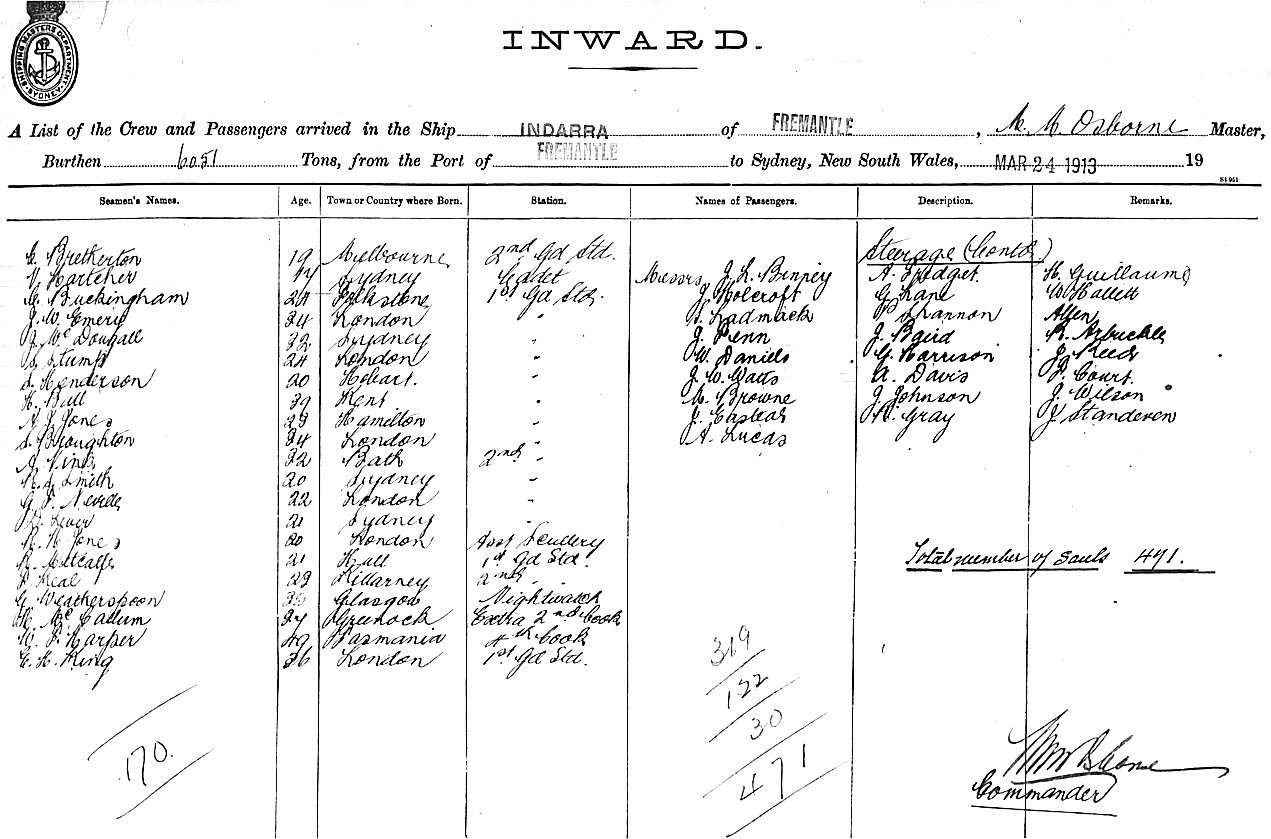 SHIPPING MASTERS DEPARTMENT
SYDNEY
INWARD.
A List of the Crew and Passengers arrived in the Ship INDARRA of FREMANTLE, M. M. Osborne Master,
Burthen 6051 Tons, from the Port of FREMANTLE to Sydney, New South Wales, MAR 24 1913 19
Seamen's Names. Age. Town or Country where Born. Station. Names of Passengers. Description. Remarks.
Steerage (Contd)
Bretherton 19 Melbourne 2nd Gd Std.
Hartcher 17 Sydney Cadet Messrs J. L. Binney A. Bridget H. Guillaume
G. Buckingham 24 1st Gd Std. J. Holcroft G. Lane W. Hallett
J. W. Emery 34 London " Ladmack Shannon Allen
J. McDougall 32 Sydney " J. Penn J. Baird R. Arbuckle
Stump 24 London " W. Daniels G. Harrison J. Reeds
Henderson 20 Hobart. " J. W. Watts A. Davis Court
H. Ball 39 Kent " M. Browne J. Johnson J. Wilson
A. J. Jones 23 Hamilton " J. Gray J. Standeven
Broughton 34 London " A. Lucas
32 Bath 2nd "
Smith 20 Sydney "
22 London "
Lever 21 Sydney "
R. H. Jones 20 London Asst Scullery
R. Metcalfe 21 Hull 1st Gd Std.
23 Killarney 2nd "
G. Weatherspoon Glasgow Nightwatch
McCallum Greenock Extra 2nd Cook
Harper 49 Tasmania 4th Cook
King 36 London 1st Gd Std.
Total number of Souls 471.
170.
319
122
30
471
Commander